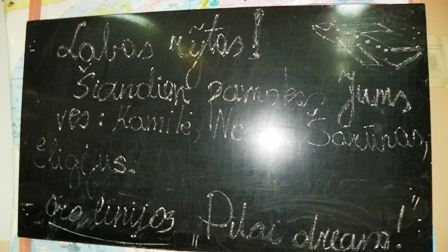 Labas rytas!
Šiandien pamokas Jums
ves: Kamilė, Šarūnas,
Eligijus.
oro linijos „Pilai dreams!"